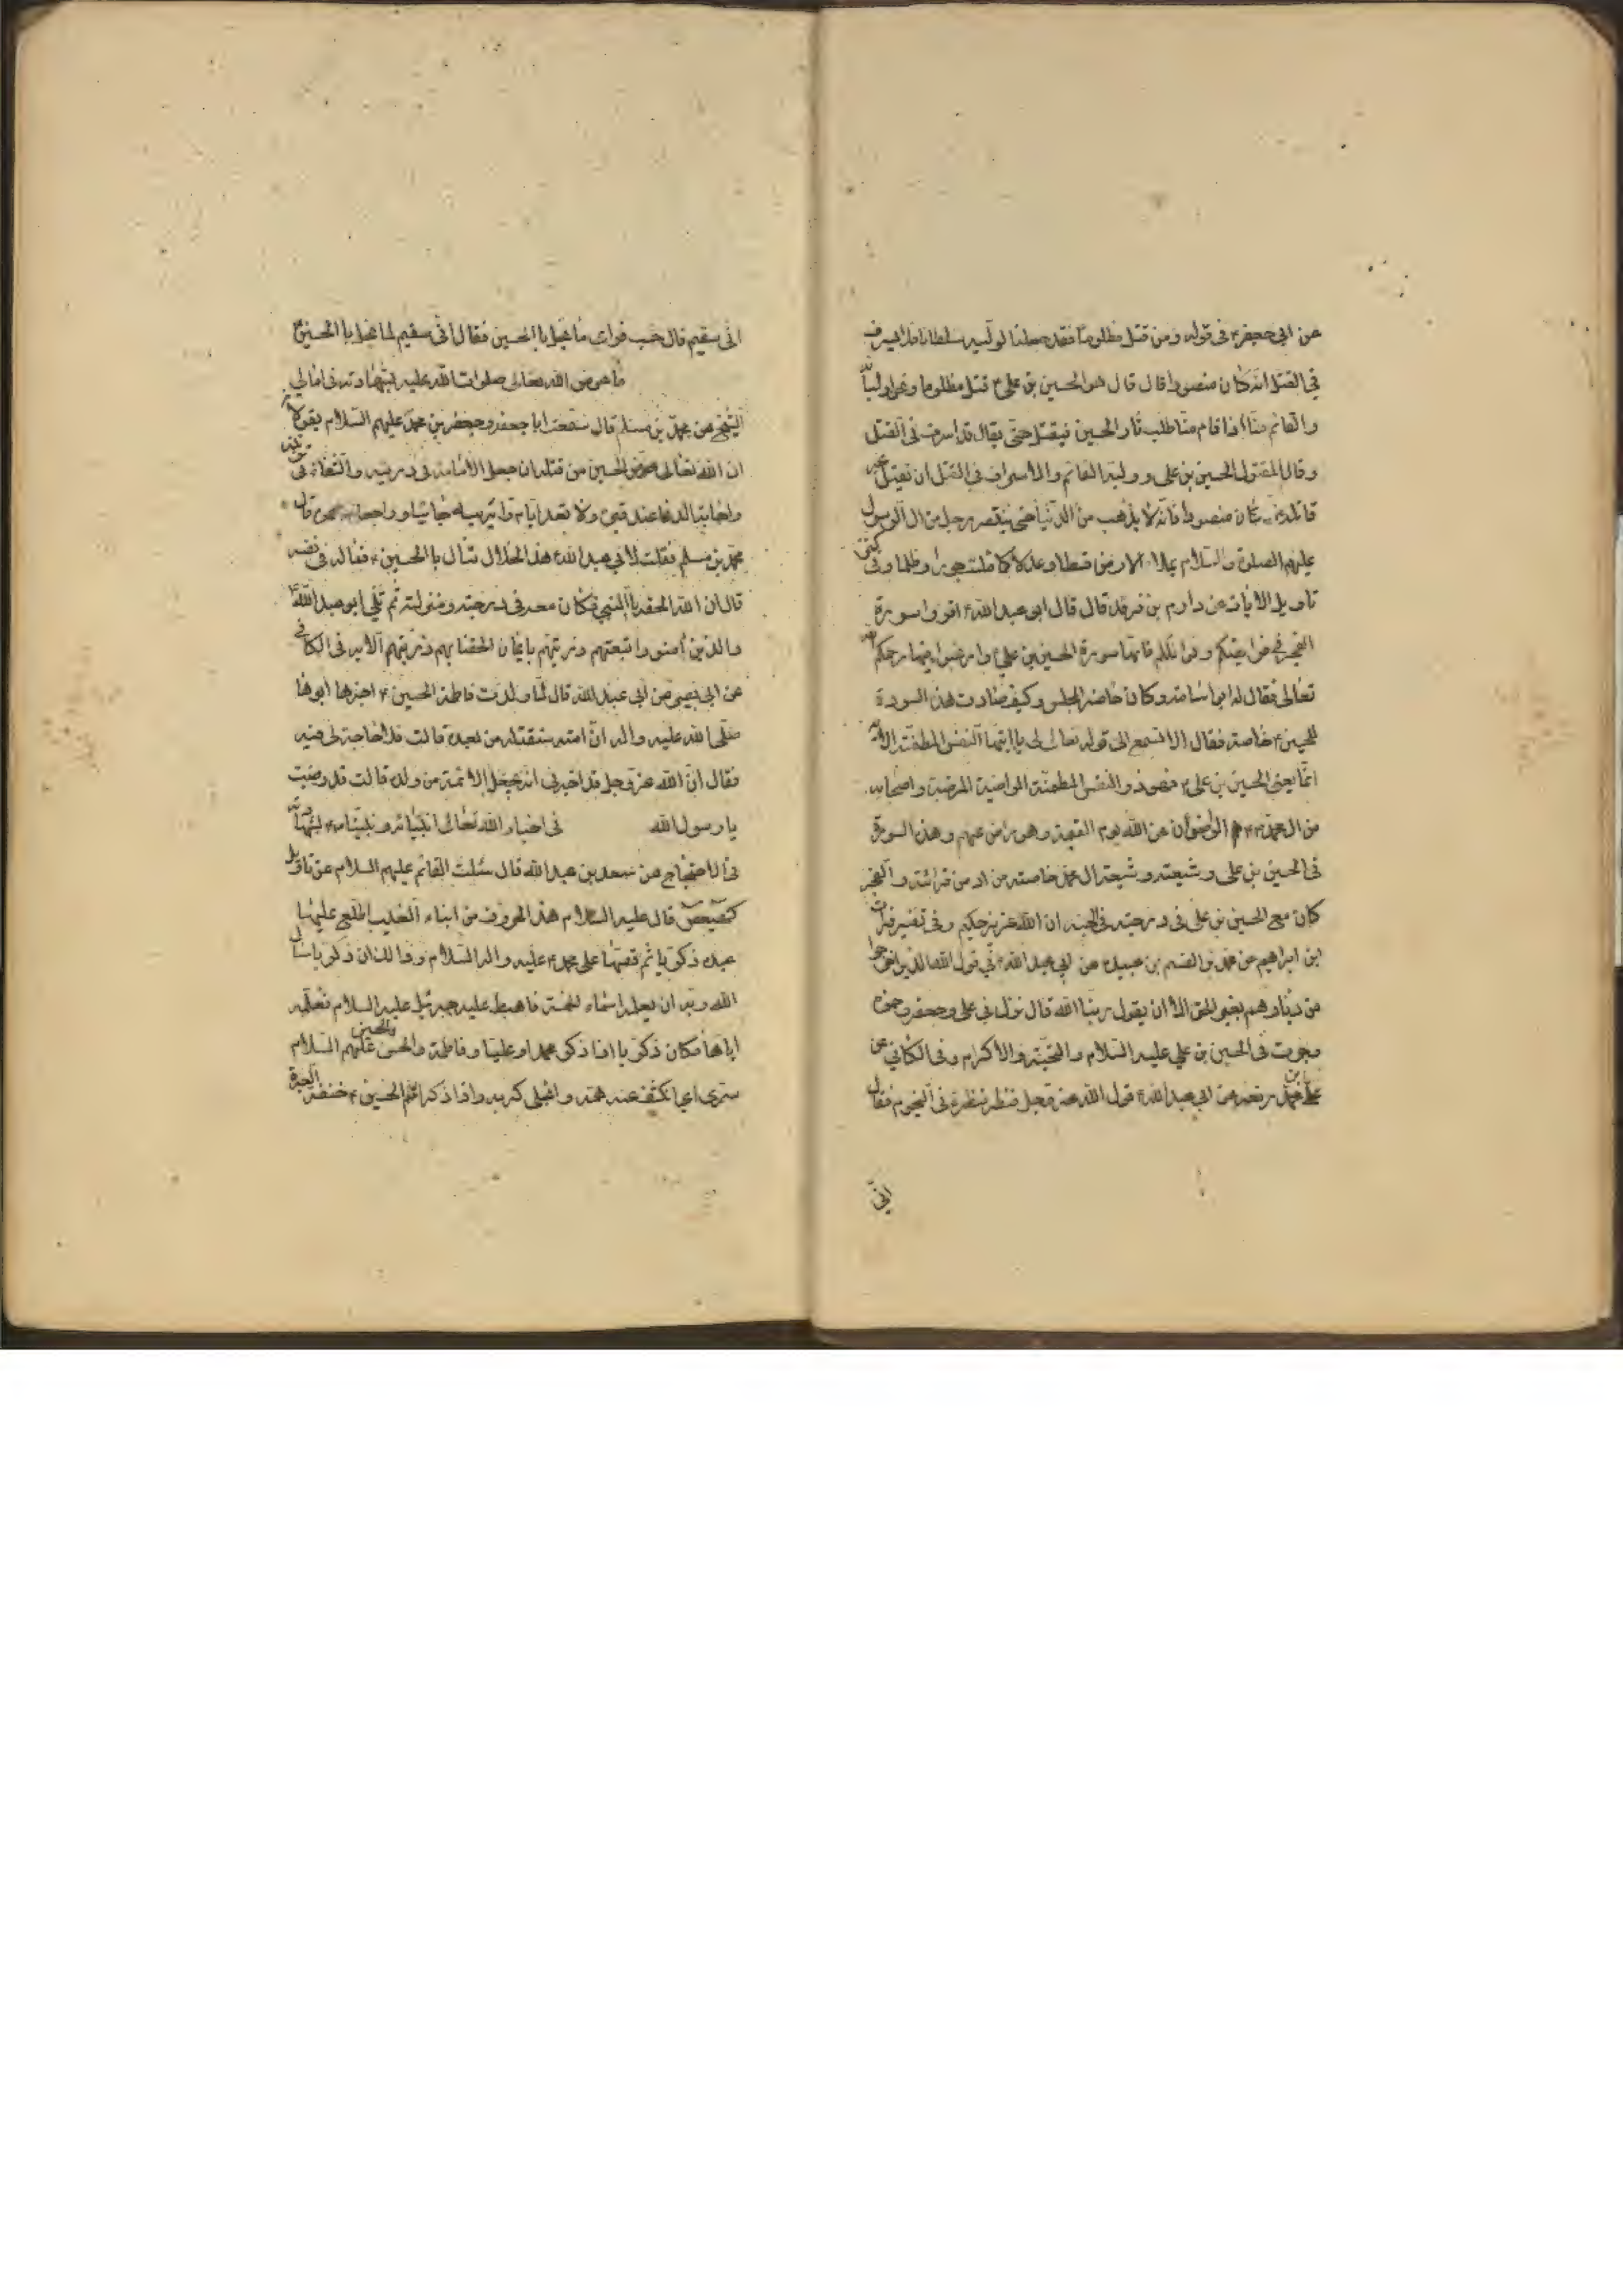 عن ابي جعفر ع في قوله ومن قتل مظلوما فقد جعلنا لوليه سلطانا فلا يسرف
في القتل انه كان منصورا قال قال هو الحسين بن علي ع قتل مظلوما ونحن اوليائه
والقائم منا اذا قام منا طلب ثار الحسين فيقتل حتى يقال قد اسرف في القتل
وقال المقتول الحسين بن علي ووليه القائم والاسراف في القتل ان يقتل غير
قاتله انه كان منصورا فانه لا يذهب من الدنيا حتى ينتصر برجل من ال الرسول
عليهم الصلوة والسلام يملاء الارض قسطا وعدلا كما ملئت جورا وظلما وفي كنز
تاويل الايات عن دارم بن فرقد قال قال ابو عبد الله ع اقروا سورة
الفجر في فرائضكم ونوافلكم فانها سورة الحسين بن علي ع وارغبوا فيها رحمكم الله
تعالى فقال له ابو اسامة وكان حاضر المجلس وكيف صارت هذه السورة
للحسين ع خاصة فقال الا تسمع الى قوله تعالى يا ايتها النفس المطمئنة الاية
انما يعني الحسين بن علي ع فهو ذو النفس المطمئنة الراضية المرضية واصحابه
من ال محمد ع هم الراضون عن الله يوم القيمة وهو راض عنهم وهذه السورة
في الحسين بن علي وشيعته وشيعة ال محمد خاصة من ادمن قرائة والفجر
كان مع الحسين بن علي في درجته في الجنة ان الله عزيز حكيم وفي تفسير فرات
ابن ابراهيم عن محمد بن القسم بن عبيد عن ابي عبد الله ع في قول الله الذين اخرجوا
من ديارهم بغير الحق الا ان يقول ربنا الله قال نزل في علي وجعفر وحمزه
وجرت في الحسين بن علي عليه السلام والتحية والاكرام وفي الكافي عن
علي بن محمد رفعه عن ابي عبد الله ع قول الله عز وجل فنظر نظرة في النجوم فقال
اني
اني سقيم قال حسب فراى ما يحل بالحسين فقال اني سقيم لما يحل بالحسين ع
ما عوض الله تعالى صلوات الله عليه بشهادته في امالي
الشيخ عن محمد بن مسلم قال سمعت ابا جعفر وجعفر بن محمد عليهم السلام يقولان
ان الله تعالى عوض الحسين من قتله ان جعل الامامة في ذريته والشفاء في تربته
واجابة الدعا عند قبره ولا تعد ايام زائريه جائيا وراجعا من عمره قال
محمد بن مسلم فقلت لابي عبد الله ع هذا الخلال تنال بالحسين ع فماله في نفسه
قال ان الله الحقه بالنبي فكان معه في درجته ومنزلته ثم تلى ابو عبد الله ع
والذين امنوا واتبعتهم ذريتهم بايمان الحقنا بهم ذريتهم الاية في الكافي
عن ابي بصير عن ابي عبد الله قال لما ولدت فاطمة الحسين ع اخبرها ابوها
صلى الله عليه واله ان امته ستقتله من بعده قالت فلا حاجة لي فيه
فقال ان الله عز وجل قد اخبرني انه يجعل الائمة من ولده قالت قد رضيت
يا رسول الله في اخبار الله تعالى انبيائه ونبينا ع بشهادته
في الاحتجاج عن سعد بن عبد الله قال سئلت القائم عليهم السلام عن تاويل
كهيعص قال عليه السلام هذه الحروف من انباء الغيب اطلع عليها
عبده ذكريا ثم قصها على محمد ع عليه واله السلام وذالك ان ذكريا سال
الله ربه ان يعلمه اسماء الخمسة فاهبط عليه جبرئيل عليه السلام فعلمه
اياها فكان ذكريا اذا ذكر محمدا وعليا وفاطمة والحسن والحسين عليهم السلام
سرى اي انكشف عنه همه وانجلى كربه واذا ذكر اسم الحسين ع خنقته العبرة